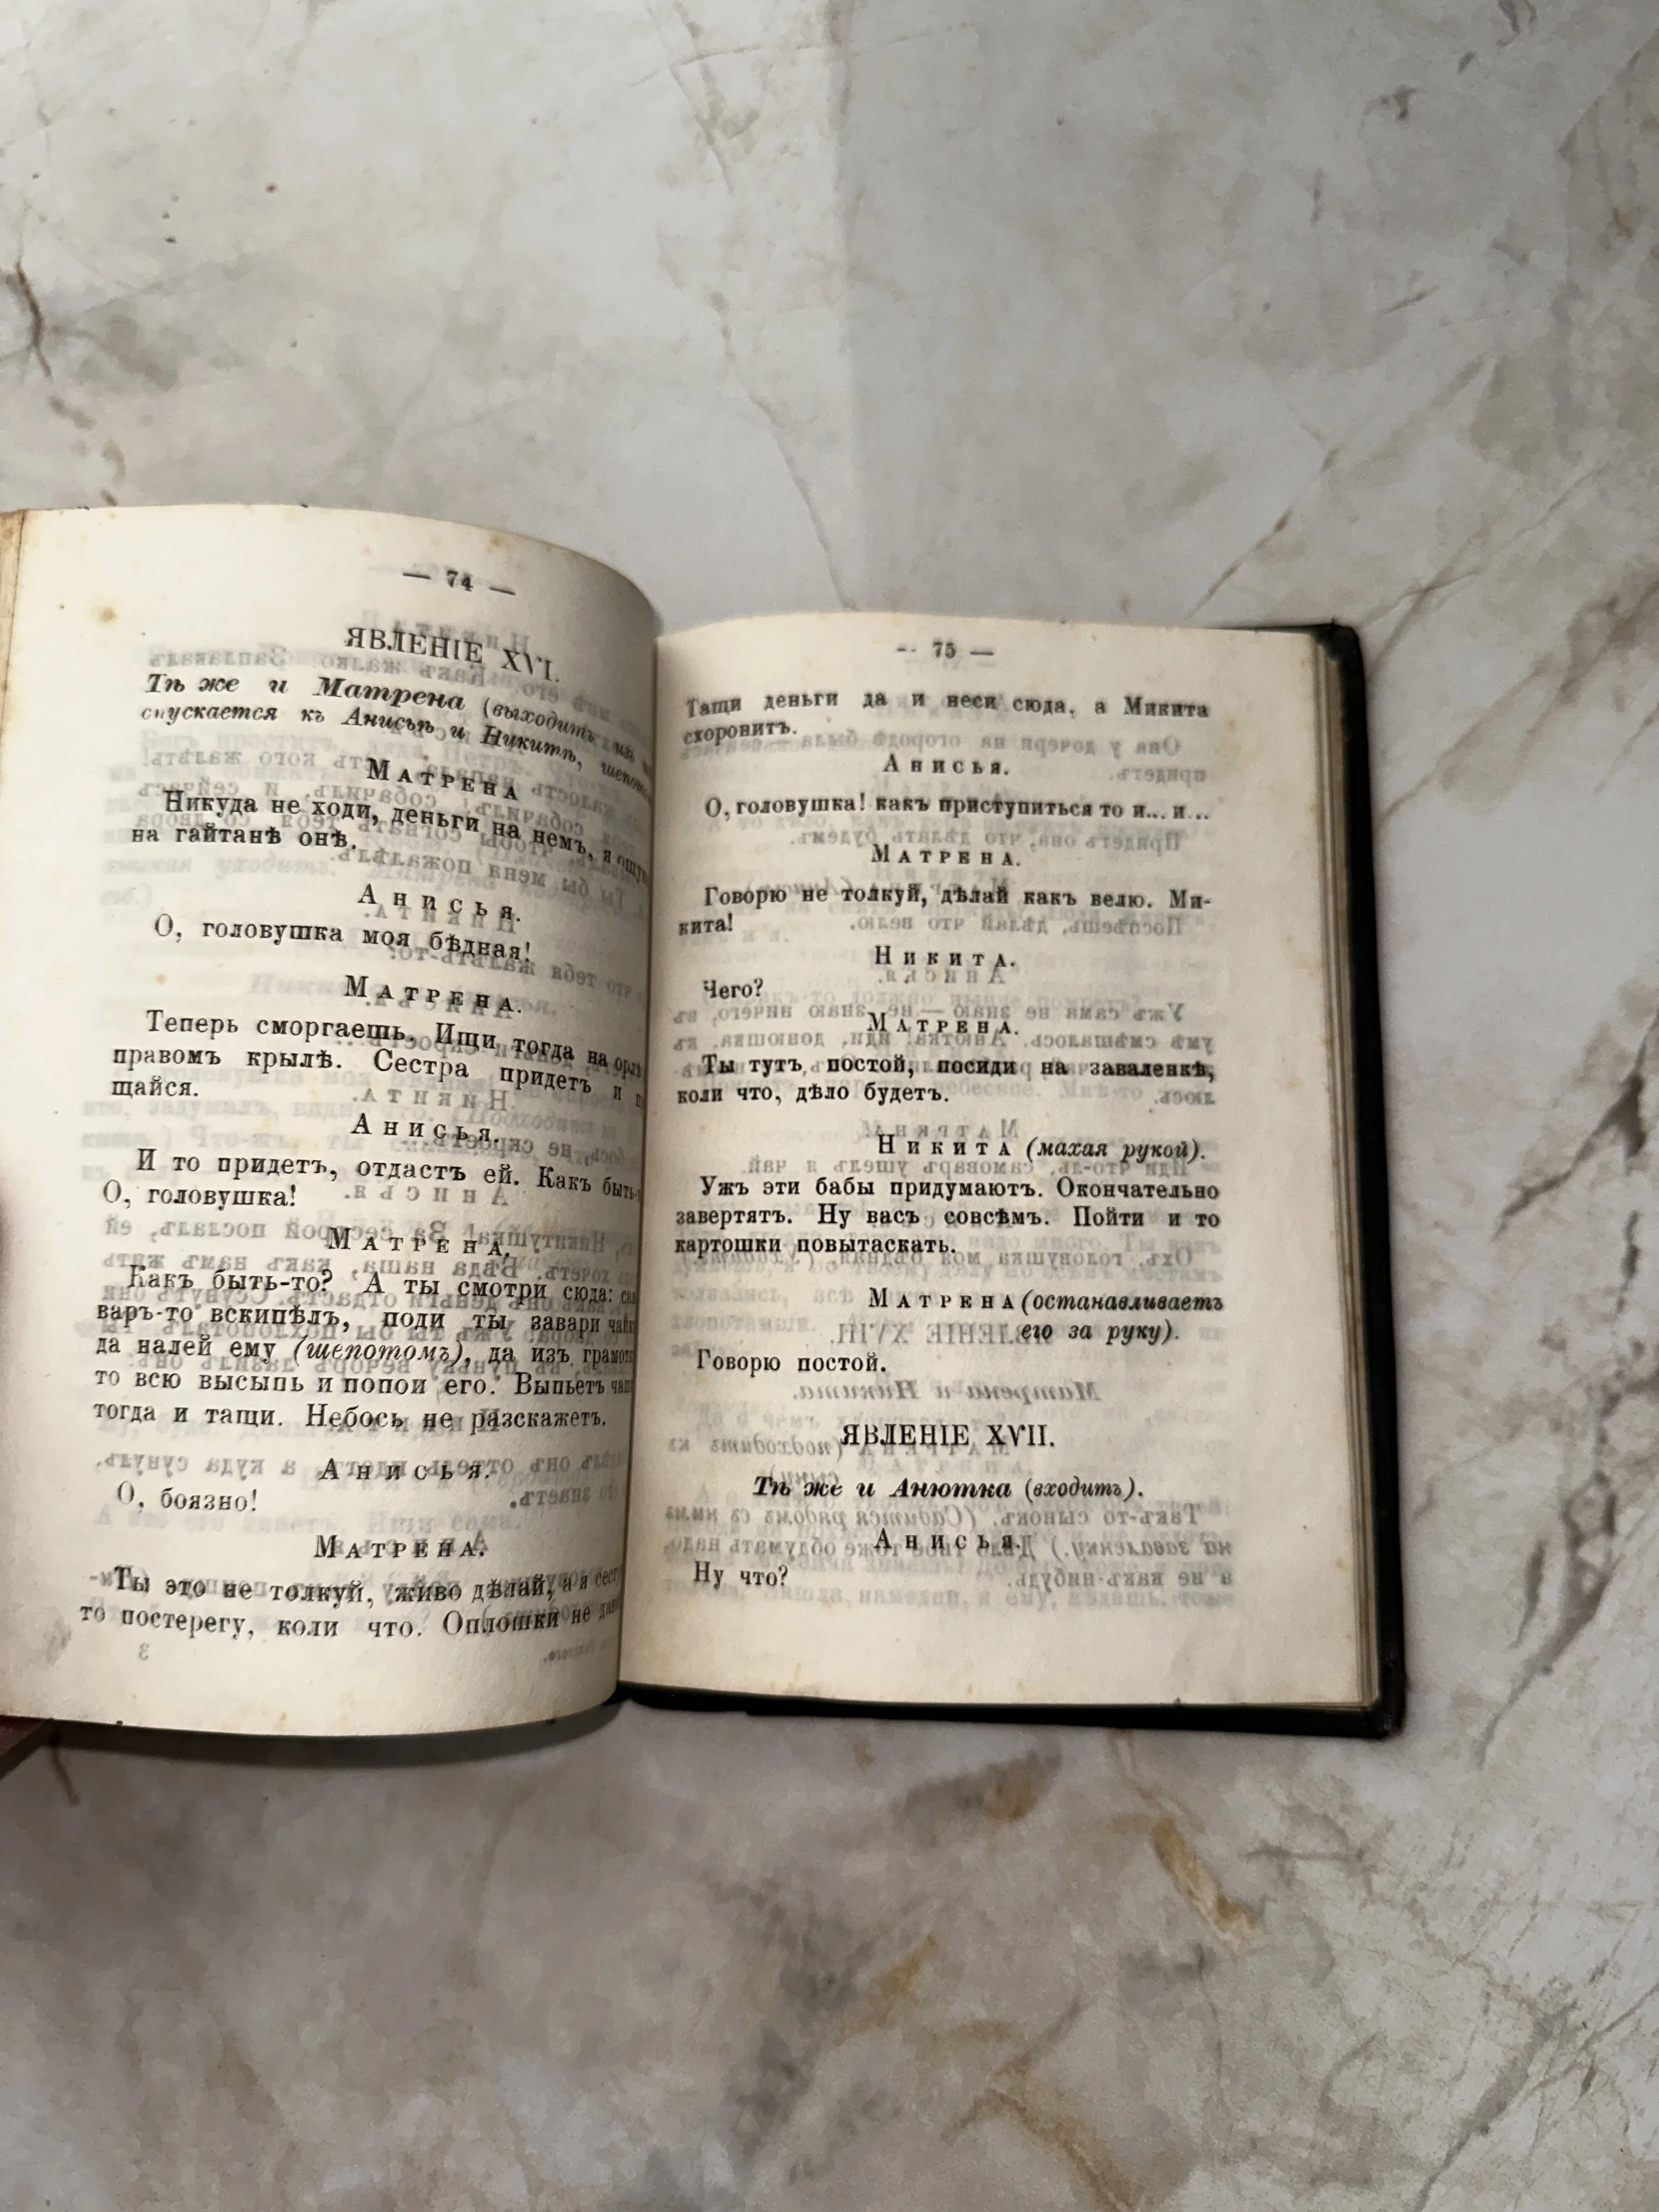 — 74 —
ЯВЛЕНІЕ XVI.
Тѣ же и Матрена (выходитъ изъ
спускается къ Анисьѣ и Никитѣ,
Матрена
Никуда не ходи, деньги на немъ, я
на гайтанѣ онѣ.
Анисья.
О, головушка моя бѣдная!
Матрена.
Теперь сморгаешь. Ищи тогда на
правомъ крылѣ. Сестра придетъ и
щайся.
Анисья.
И то придетъ, отдастъ ей. Какъ быть-
О, головушка!
Матрена.
Какъ быть-то? А ты смотри сюда:
варъ-то вскипѣлъ, поди ты завари
да налей ему (шепотомъ), да изъ
то всю высыпь и попои его. Выпьетъ
тогда и тащи. Небось не разскажетъ.
Анисья.
О, боязно!
Матрена.
Ты это не толкуй, живо дѣлай, а я
то постерегу, коли что. Оплошки не
-- 75 —
Тащи деньги да и неси сюда, а Микита
схоронитъ.
Анисья.
О, головушка! какъ приступиться то и... и...
Матрена.
Говорю не толкуй, дѣлай какъ велю. Ми-
кита!
Никита.
Чего?
Матрена.
Ты тутъ, постой, посиди на заваленкѣ,
коли что, дѣло будетъ.
Никита (махая рукой).
Ужъ эти бабы придумаютъ. Окончательно
завертятъ. Ну васъ совсѣмъ. Пойти и то
картошки повытаскать.
Матрена (останавливаетъ
его за руку).
Говорю постой.
ЯВЛЕНІЕ XVII.
Тѣ же и Анютка (входитъ).
Анисья.
Ну что?